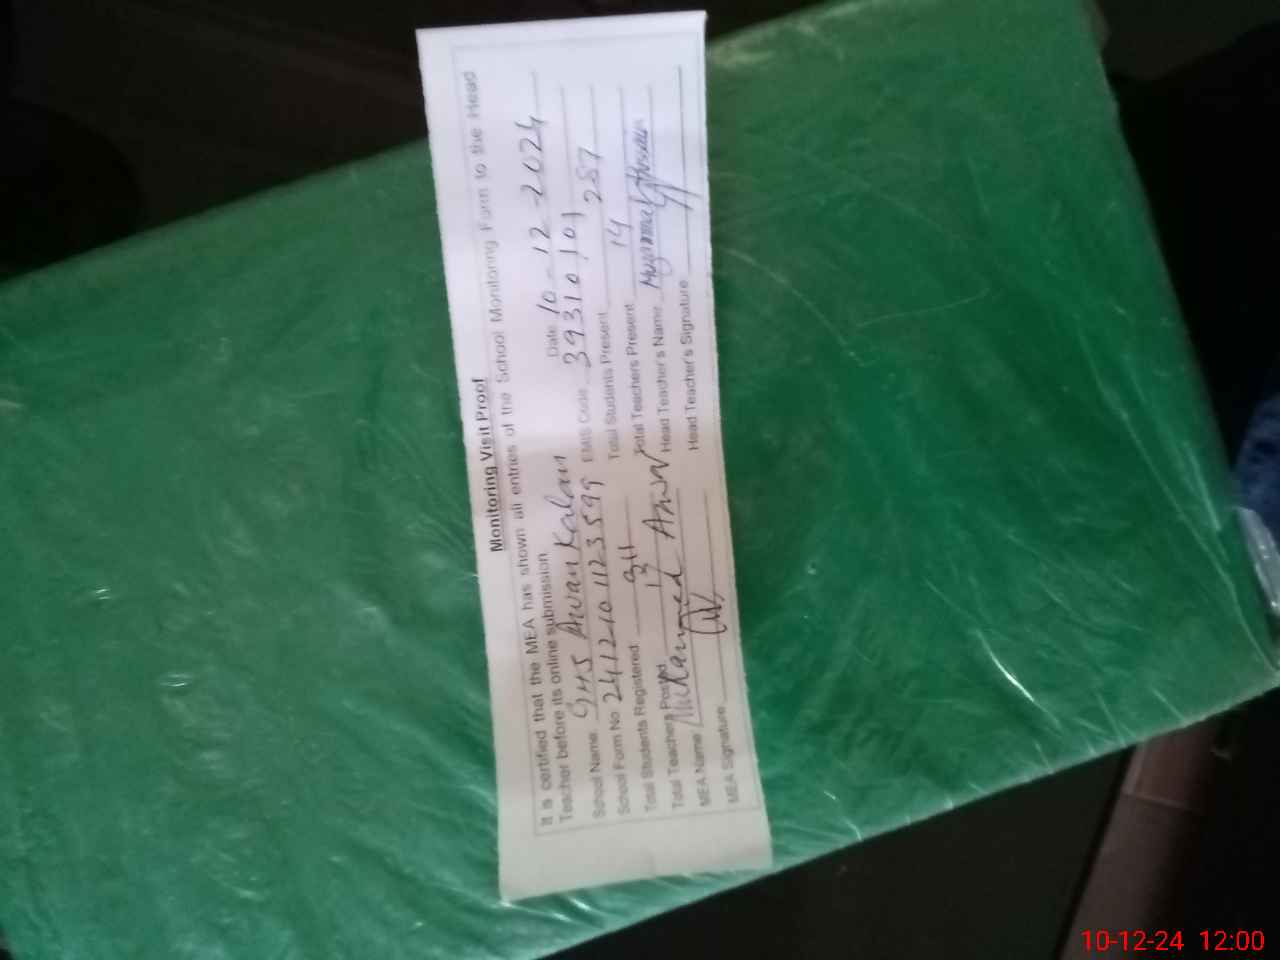 Monitoring Visit Proof
It is certified that the MEA has shown all entries of the School Monitoring Form to the Head
Teacher before its online submission.
Date 10-12-2024
School Name GHS Awan Kalan EMIS Code 39310101
School Form No 2412101123599 Total Students Present 287
Total Students Registered 311 Total Teachers Present 14
Total Teachers Posted 17 Head Teacher's Name Hussain
MEA Name Muhammad Anwar Head Teacher's Signature
MEA Signature
10-12-24 12:00